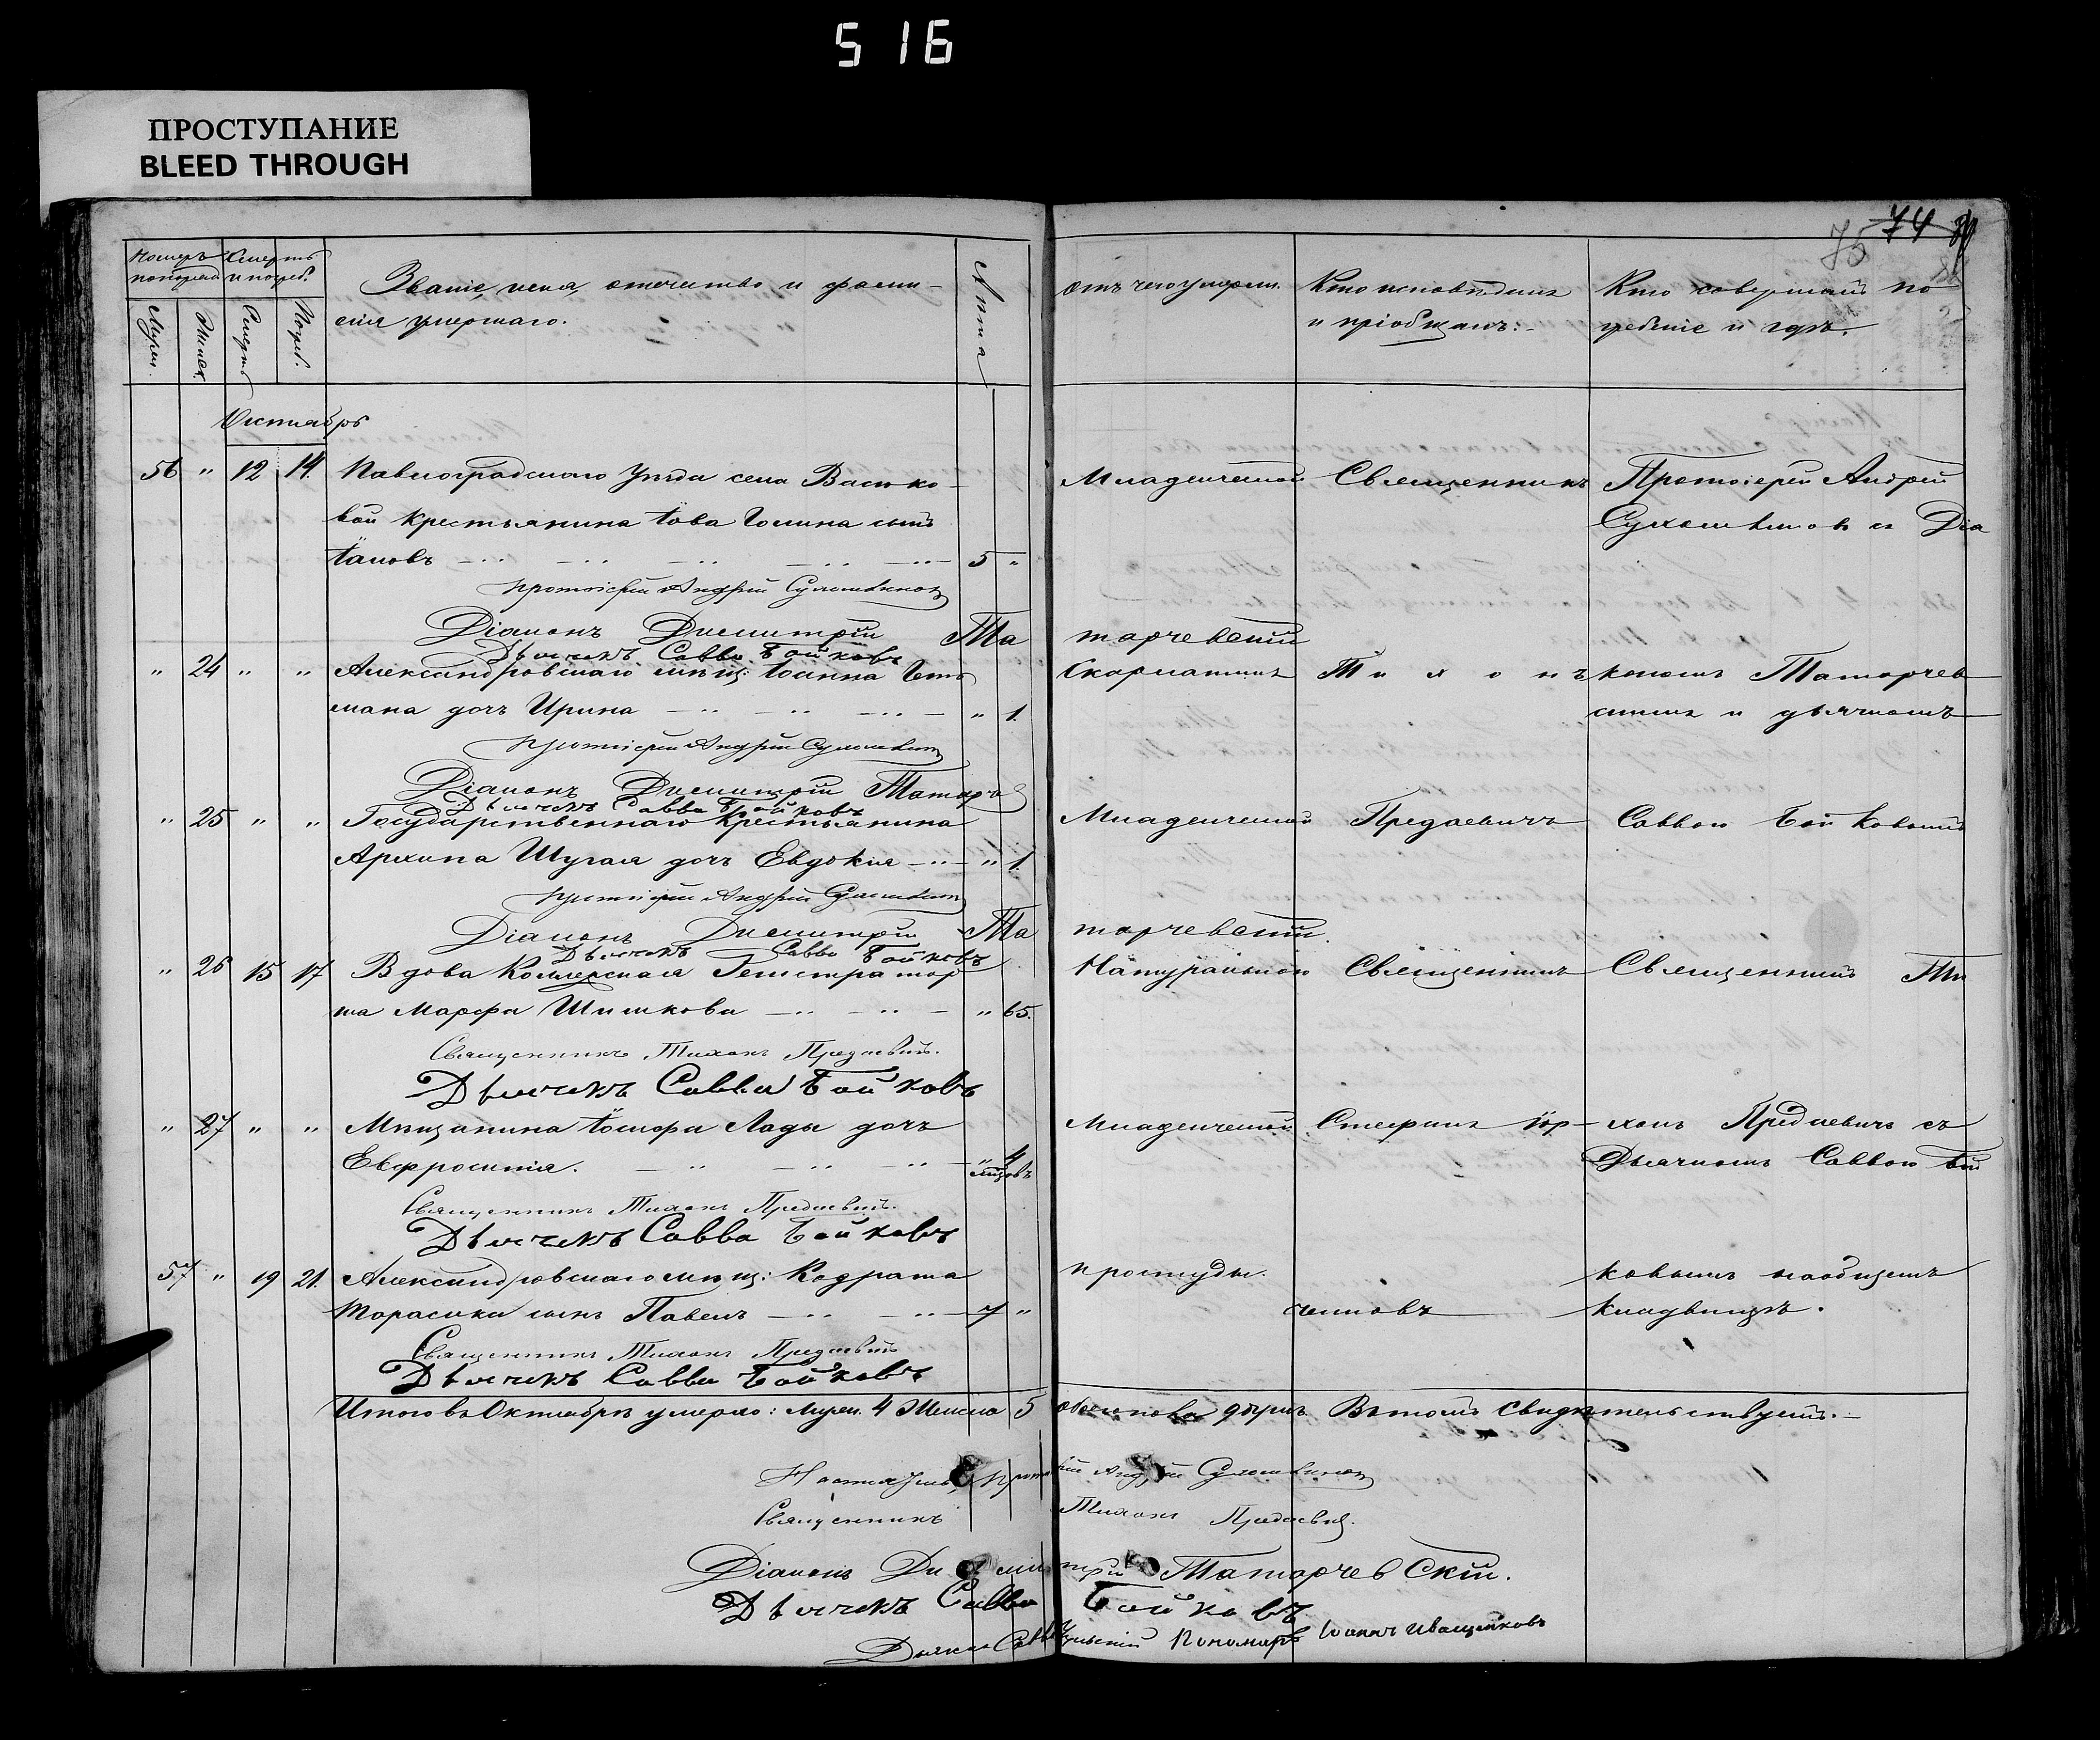 516
ПРОСТУПАНИЕ
BLEED THROUGH
75 74
Номеръ Смерть
и погреб.
Муж. Женск. Смерть Погреб.
Званіе, имя, отечество и фами-
лія умершаго.
Лѣта
отъ чего умеръ
Кто исповѣдывалъ
и пріобщалъ:
Кто совершалъ по
гребеніе и гдѣ.
Октябрь
56 " 12 14. Павлоградскаго Уѣзда села Василько-
вой крестьянина сынъ
Іаковъ 5 "
Младенческой Священникъ Протоіерей Андрей
и Діа
Протоіерей Андрей
Діаконъ Димитрій Та тарчевскій
Дьячекъ Савва Бойковъ
" 24 " " Александровскаго мѣщ: Іоанна Гет
мана дочь Ирина " 1.
Скарлатины Тихонъ кономъ Татарчев
скимъ и дьячкомъ
Протоіерей Андрей
Діаконъ Димитрій Татарч
Дьячекъ Савва Бойковъ
" 25 " " Государственнаго Крестьянина
Архипа Шугая дочь Евдокія " 1.
Младенческой Предаевичъ Саввою Бойковымъ
Протоіерей Андрей
Діаконъ Димитрій Та тарчевскій.
Дьячекъ Савва Бойковъ
" 26 15 17 Вдова Коллежская Регистратор
ша Марфа Шишкова " 65.
Натуральной Священникъ Священникъ Ти
Священникъ Тихонъ Предаевичъ.
Дьячекъ Савва Бойковъ
" 27 " " Мѣщанина Іосифа Лады дочь
Евфросинія. " 4
мѣсяцовъ
Младенческой Стефанъ хонъ Предаевичъ съ
Дьячкомъ Саввою Бой
Священникъ Тихонъ Предаевичъ.
Дьячекъ Савва Бойковъ
57 " 19 21. Александровскаго мѣщ: Кодрата
Тарасика сынъ Павелъ 7 "
простуды. ковымъ наобщемъ
кладбищѣ.
Священникъ Тихонъ Предаевичъ
Дьячекъ Савва Бойковъ
Итого въ Октябрѣ умерло: Муж. 4 Женска 5 обоего пола душъ Въ томъ свидѣтельствуемъ.
Настоятель, Протоіерей Андрей
Священникъ Тихонъ Предаевичъ.
Діаконъ Димитрій Татарчевскій.
Дьячекъ Савва Бойковъ
Пономарь Іоаннъ Иващенковъ